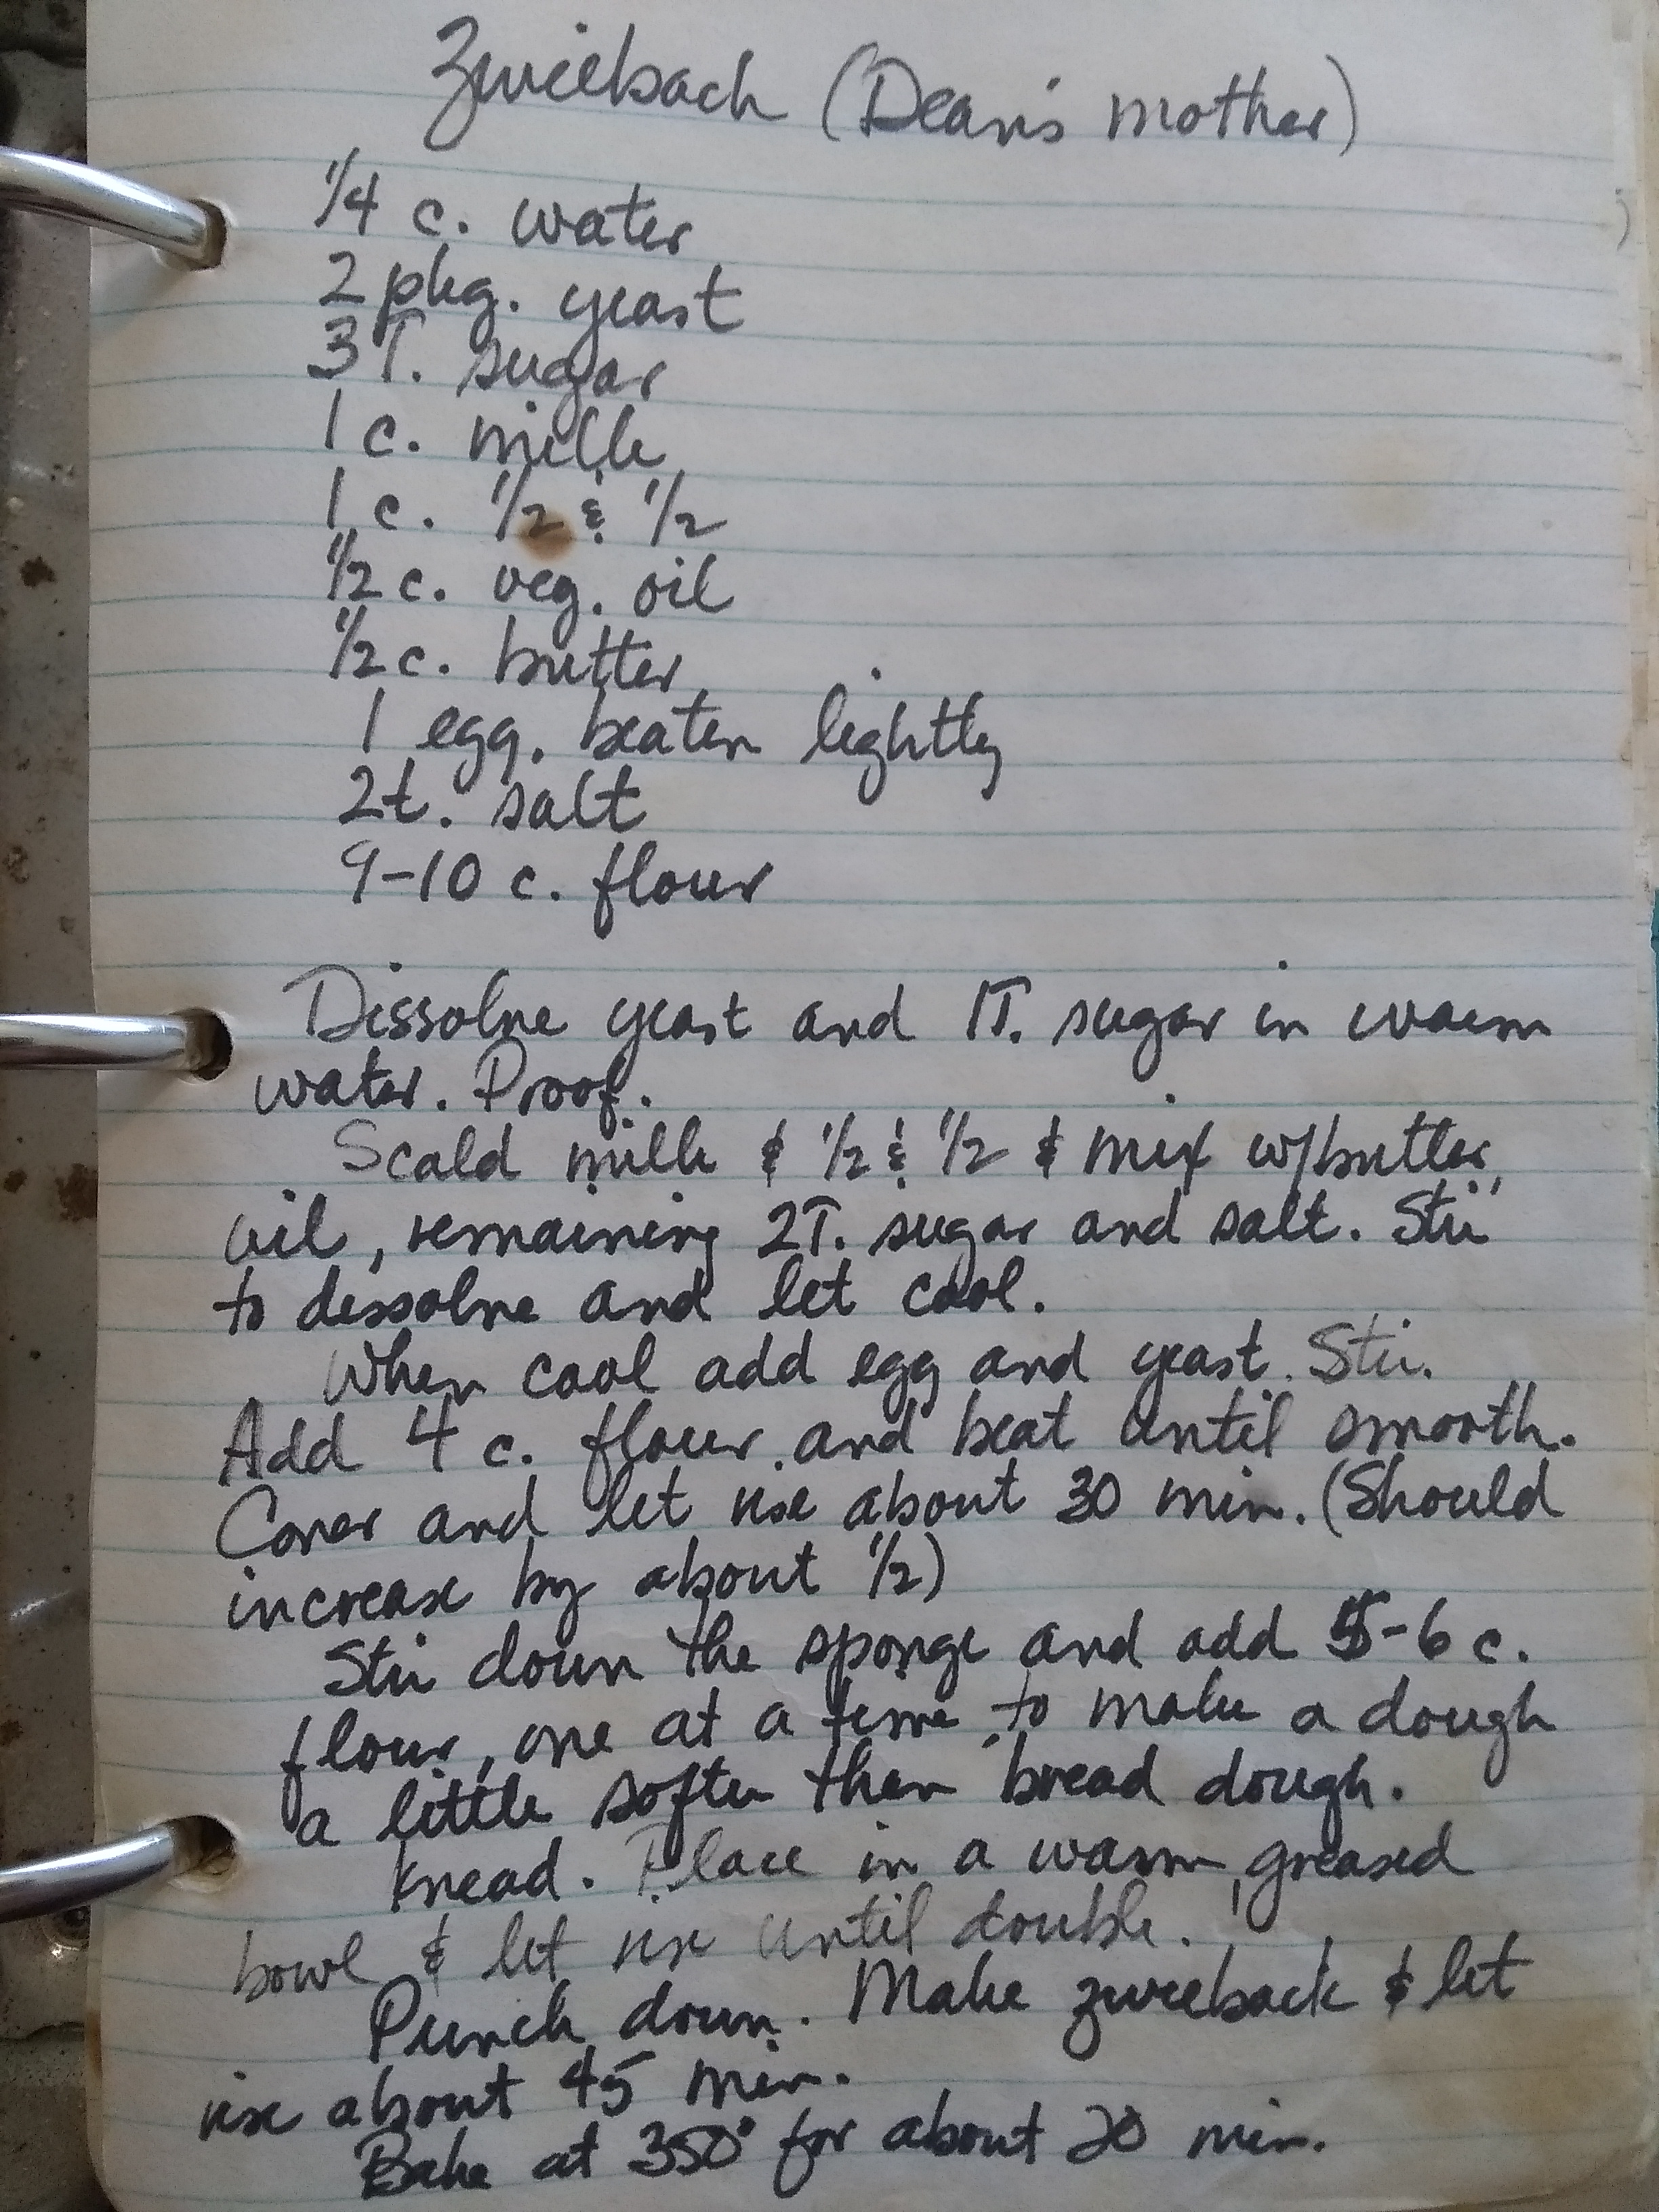 Zwieback (Dean's mother)
1/4 c. water
2 pkg. yeast
3 T. sugar
1 c. milk
1 c. 1/2 & 1/2
1/2 c. veg. oil
1/2 c. butter
1 egg, beaten lightly
2 t. salt
9-10 c. flour
Dissolve yeast and 1T. sugar in warm
water. Proof.
Scald milk & 1/2 & 1/2 & mix w/butter,
oil, remaining 2T. sugar and salt. Stir
to dissolve and let cool.
When cool add egg and yeast. Stir.
Add 4 c. flour and beat until smooth.
Cover and let rise about 30 min. (Should
increase by about 1/2)
Stir down the sponge and add 5-6 c.
flour, one at a time, to make a dough
a little softer than bread dough.
Knead. Place in a warm, greased
bowl & let rise until double.
Punch down. Make zwieback & let
rise about 45 min.
Bake at 350° for about 20 min.